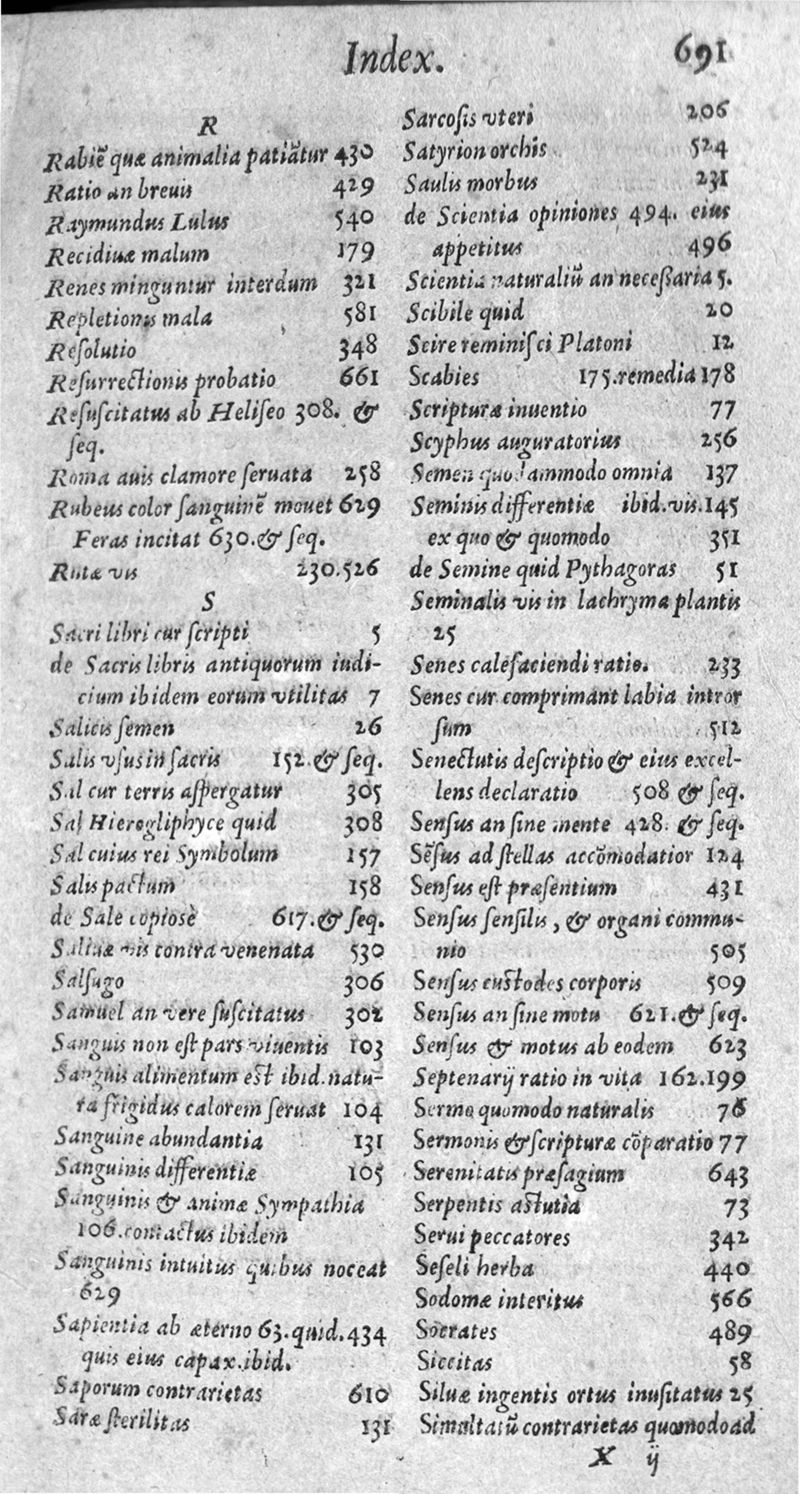 Index. 691
R
Rabiē quæ animalia patiātur 430
Ratio an breuis 429
Raymundus Lulus 540
Recidiuæ malum 179
Renes minguntur interdum 321
Repletionis mala 581
Reſolutio 348
Reſurrectionis probatio 661
Reſuſcitatus ab Heliſeo 308. &
ſeq.
Roma auis clamore ſeruata 258
Rubeus color ſanguinē mouet 629
Feras incitat 630. & ſeq.
Rutæ vis 230.526
S
Sacri libri cur ſcripti 5
de Sacris libris antiquorum iudi-
cium ibidem eorum vtilitas 7
Salicis ſemen 26
Salis vſus in ſacris 152. & ſeq.
Sal cur terris aſpergatur 305
Sal Hierogliphyce quid 308
Sal cuius rei Symbolum 157
Salis pactum 158
de Sale copiosè 617. & ſeq.
Saliuæ vis contra venenata 530
Salſugo 306
Samuel an vere ſuſcitatus 302
Sanguis non eſt pars viuentis 103
Sanguis alimentum eſt ibid. natu-
ra frigidus calorem ſeruat 104
Sanguine abundantia 131
Sanguinis differentiæ 105
Sanguinis & animæ Sympathia
106. contactus ibidem
Sanguinis intuitus quibus noceat
629
Sapientia ab æterno 63. quid. 434
quis eius capax. ibid.
Saporum contrarietas 610
Saræ ſterilitas 131
Sarcoſis vteri 206
Satyrion orchis 524
Saulis morbus 231
de Scientia opiniones 494. eius
appetitus 496
Scientia naturaliū an neceſſaria 5.
Scibile quid 20
Scire reminiſci Platoni 12
Scabies 175. remedia 178
Scripturæ inuentio 77
Scyphus auguratorius 256
Semen quodammodo omnia 137
Seminis differentiæ ibid. vis. 145
ex quo & quomodo 351
de Semine quid Pythagoras 51
Seminalis vis in lachryma plantis
25
Senes calefaciendi ratio. 233
Senes cur comprimant labia intror
ſum 512
Senectutis deſcriptio & eius excel-
lens declaratio 508 & ſeq.
Senſus an ſine mente 428. & ſeq.
Sēſus ad ſtellas accōmodatior 124
Senſus eſt præſentium 431
Senſus ſenſilis, & organi commu-
nio 505
Senſus cuſtodes corporis 509
Senſus an ſine motu 621. & ſeq.
Senſus & motus ab eodem 623
Septenarij ratio in vita 162.199
Sermo quomodo naturalis 76
Sermonis & ſcripturæ cōparatio 77
Serenitatis præſagium 643
Serpentis aſtutia 73
Serui peccatores 342
Seſeli herba 440
Sodomæ interitus 566
Socrates 489
Siccitas 58
Siluæ ingentis ortus inuſitatus 25
Simultatū contrarietas quomodo ad
X ij